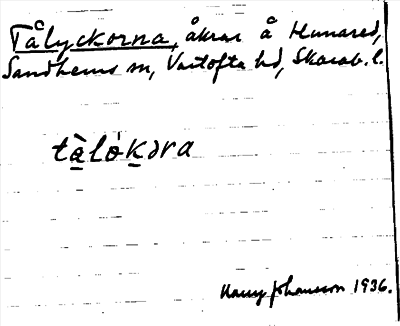 Tålyckorna, åkrar å Hunared,
Sandhems sn, Vartofta hd, Skarab. l.
tàlòkəra
Harry Johansson 1936.